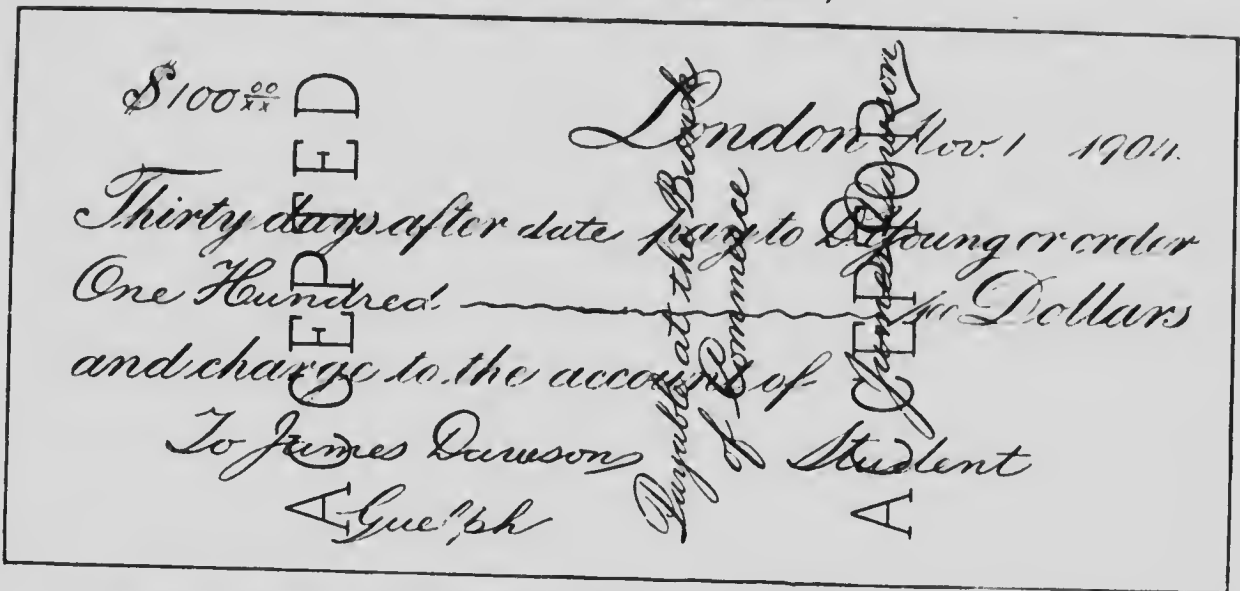 $100 00/xx
London Nov. 1 1904.
Thirty days after date pay to D. Young or order
One Hundred xx Dollars
and charge to the account of
To James Dawson Student
Guelph
ACCEPTED
Payable at the Bank
of Commerce
James Dawson